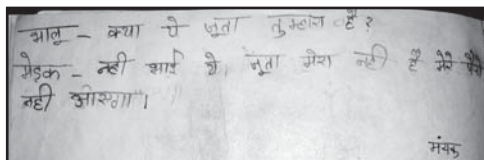 भालू - क्या ये जूता तुम्हारा है?
मेंढ़क - नही भाई ये जूता मेरा नही है मेरे पैरो
नही आएगा।
मंयक